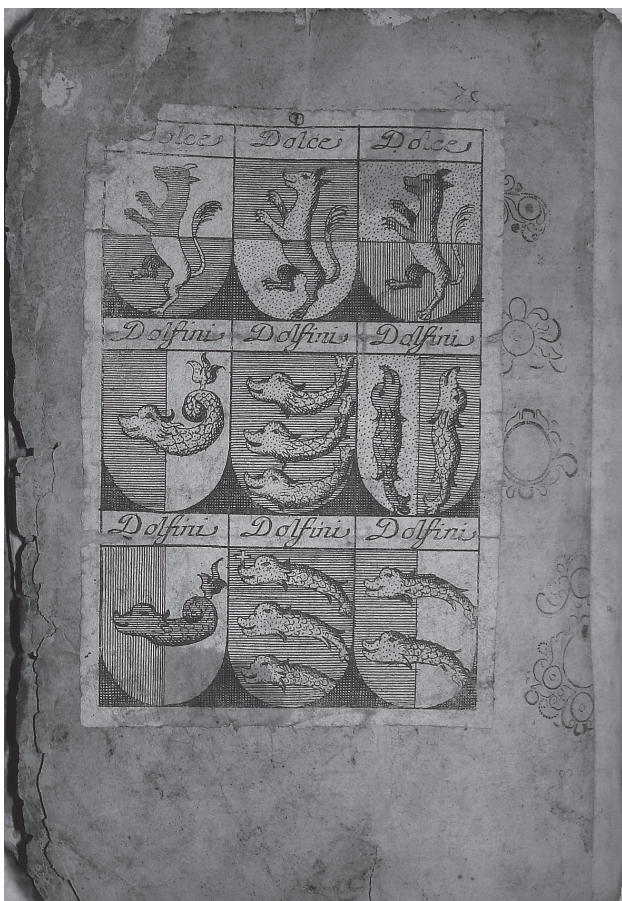 Dolce Dolce Dolce
Dolfini Dolfini Dolfini
Dolfini Dolfini Dolfini